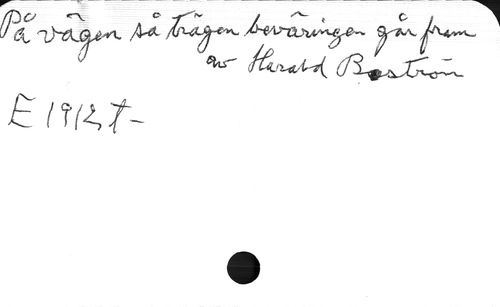 På vägen så trägen beväringen går fram
av Harald Boström
E 1912 t-